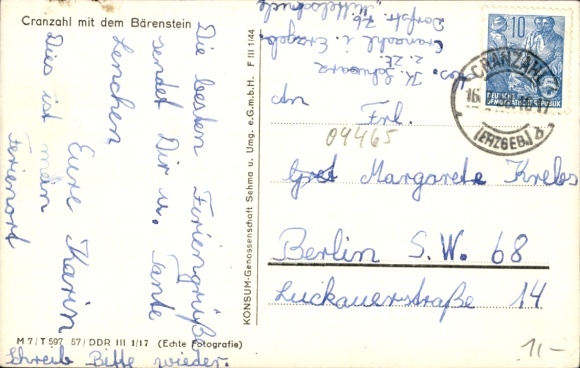 Cranzahl mit dem Bärenstein
Die besten Feriengrüße
sendet Dir u. Tante
Lenchen
Eure Karin
Dies ist mein
Ferienort
Schreib Bitte wieder.
M 7/T 597 57/DDR III 1/17 (Echte Fotografie)
KONSUM-Genossenschaft Sehma u. Umg. e.G.m.b.H. F III 1/44
Abs. K. Schwarz
z. Zt.
Cranzahl i. Erzgeb.
Dorfstr. 76
"Mittelschule"
10
DEUTSCHE
DEMOKRATISCHE REPUBLIK
CRANZAHL
16
(ERZGEB.) b
An
Frl.
09465
Gret Margarete Krebs
Berlin S.W. 68
Luckauerstraße 14
1,-